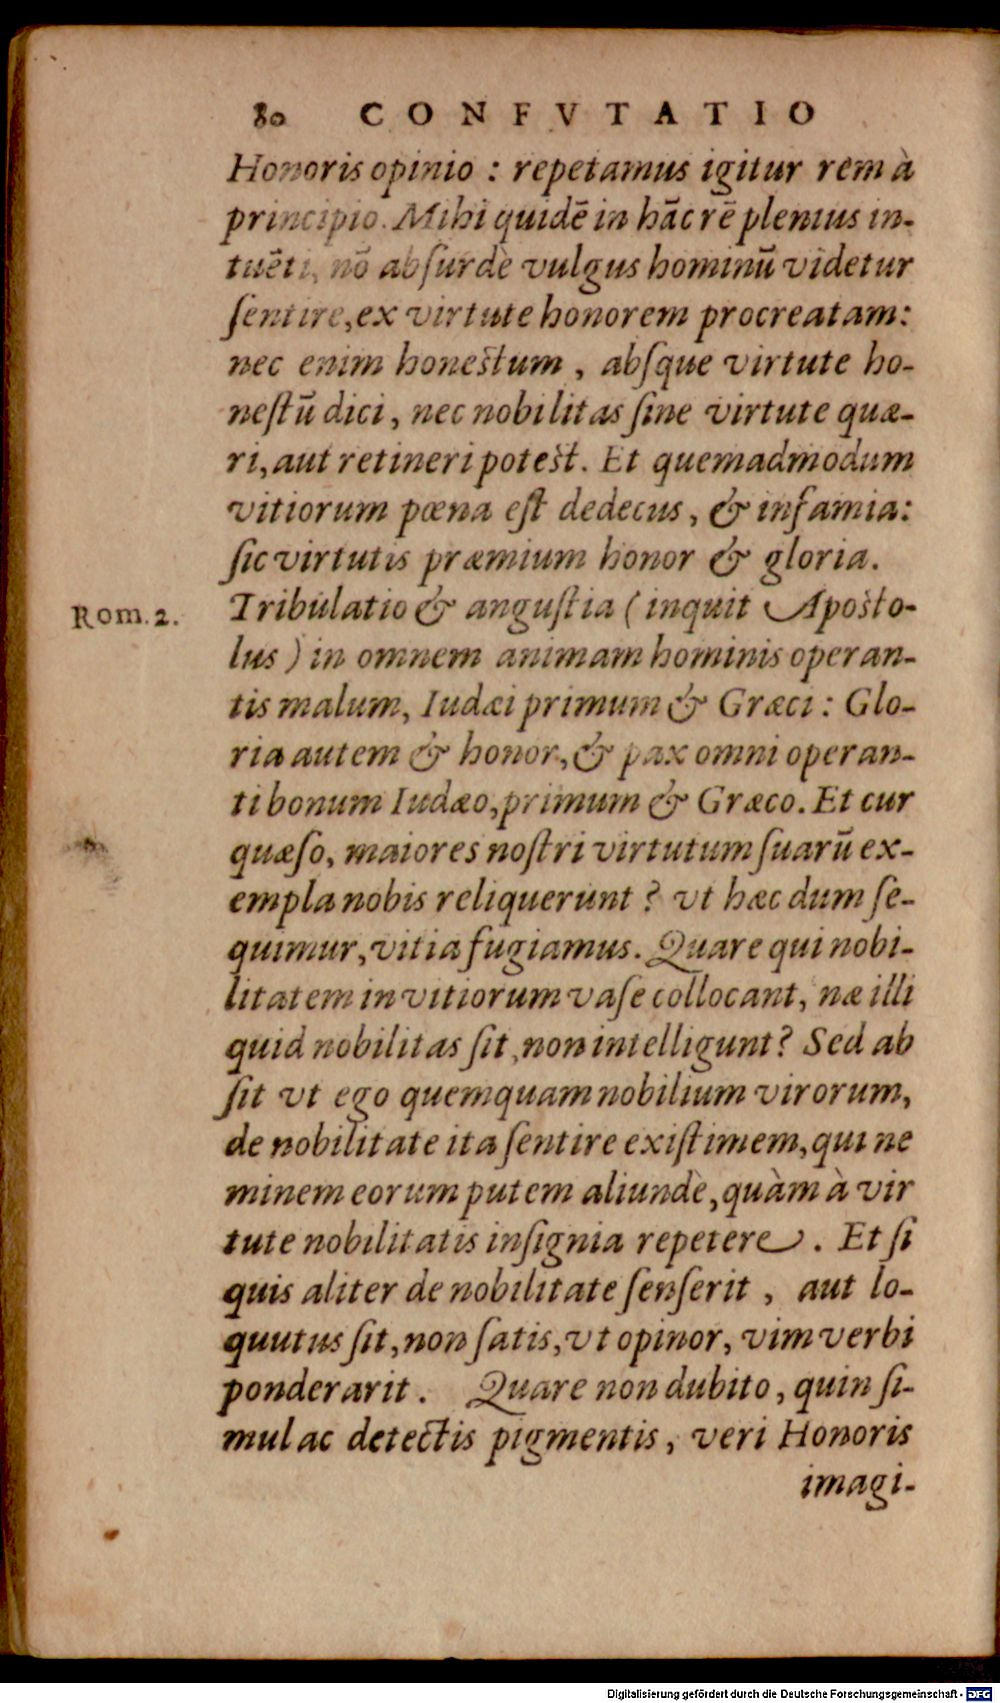 80 CONFVTATIO
Honoris opinio : repetamus igitur rem à
principio. Mihi quidē in hāc rē plenius in-
tuēti, nō absurdè vulgus hominū videtur
ſentire, ex virtute honorem procreatam:
nec enim honeſtum , abſque virtute ho-
neſtū dici, nec nobilitas ſine virtute quæ-
ri, aut retineri poteſt. Et quemadmodum
vitiorum pœna eſt dedecus, & infamia:
ſic virtutis præmium honor & gloria.
Rom. 2.
Tribulatio & anguſtia ( inquit Apoſto-
lus ) in omnem animam hominis operan-
tis malum, Iudæi primum & Græci : Glo-
ria autem & honor, & pax omni operan-
ti bonum Iudæo, primum & Græco. Et cur
quæſo, maiores noſtri virtutum ſuarū ex-
empla nobis reliquerunt ? vt hæc dum ſe-
quimur, vitia fugiamus. Quare qui nobi-
litatem in vitiorum vaſe collocant, næ illi
quid nobilitas ſit, non intelligunt? Sed ab
ſit vt ego quemquam nobilium virorum,
de nobilitate ita ſentire exiſtimem, qui ne
minem eorum putem aliundè, quàm à vir
tute nobilitatis inſignia repetere . Et ſi
quis aliter de nobilitate ſenſerit , aut lo-
quutus ſit, non ſatis, vt opinor, vim verbi
ponderarit . Quare non dubito, quin ſi-
mul ac detectis pigmentis, veri Honoris
imagi-
Digitalisierung gefördert durch die Deutsche Forschungsgemeinschaft - DFG